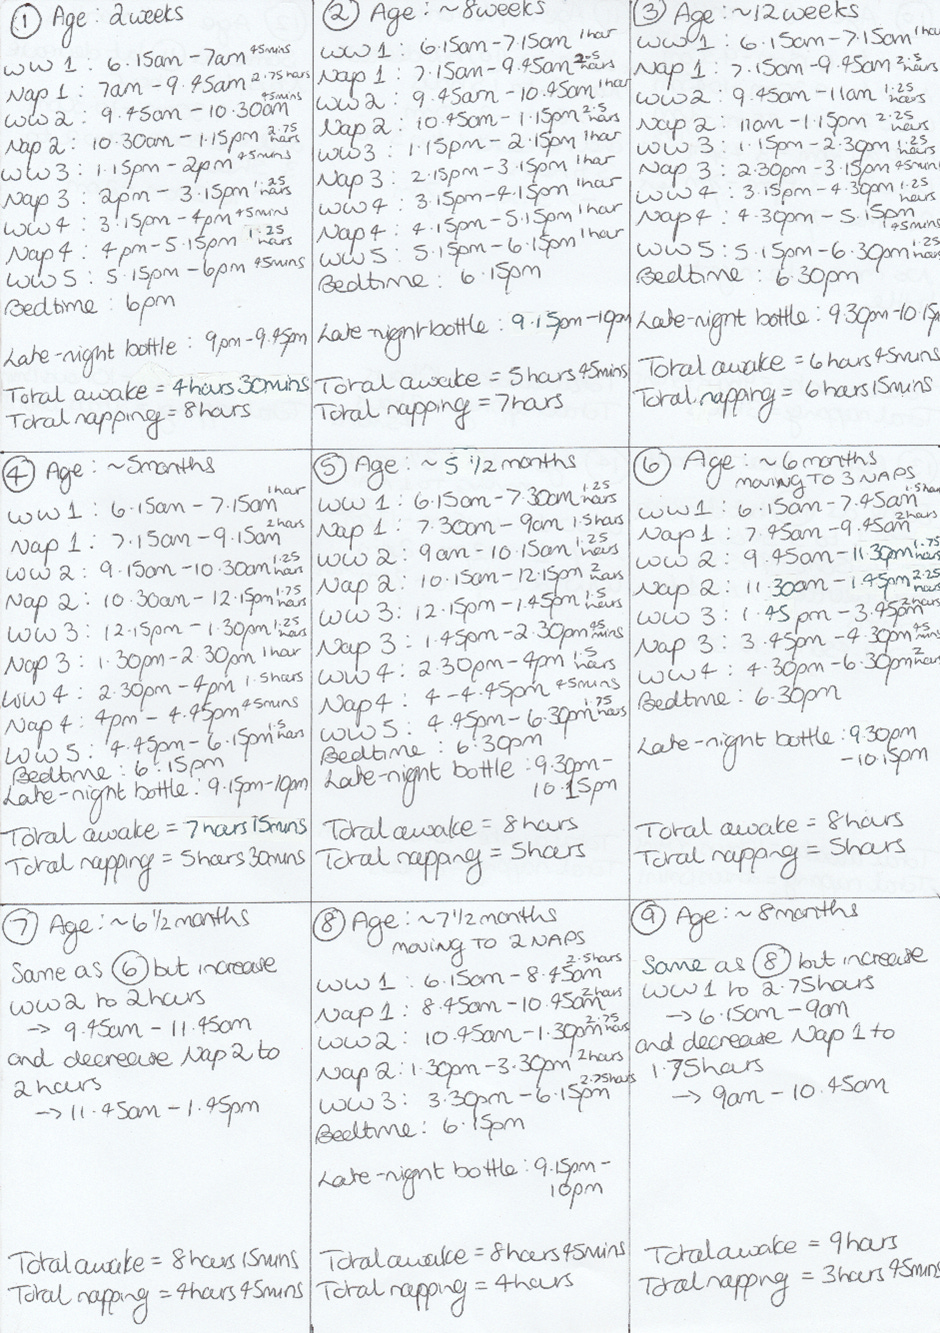 ① Age: 2weeks
WW1: 6.15am - 7am 45mins
Nap 1: 7am - 9.45am 2.75hours
WW2: 9.45am - 10.30am 45mins
Nap 2: 10.30am - 1.15pm 2.75 hours
WW3: 1.15pm - 2pm 45mins
Nap 3: 2pm - 3.15pm 1.25 hours
WW4: 3.15pm - 4pm 45mins
Nap 4: 4pm - 5.15pm 1.25 hours
WW5: 5.15pm - 6pm 45mins
Bedtime: 6pm
Late-night bottle: 9pm-9.45pm
Total awake = 4hours 30mins
Total napping = 8hours
② Age: ~8weeks
WW1: 6.15am - 7.15am 1hour
Nap 1: 7.15am - 9.45am 2.5 hours
WW2: 9.45am - 10.45am 1hour
Nap 2: 10.45am - 1.15pm 2.5 hours
WW3: 1.15pm - 2.15pm 1hour
Nap 3: 2.15pm - 3.15pm 1hour
WW4: 3.15pm - 4.15pm 1hour
Nap 4: 4.15pm - 5.15pm 1hour
WW5: 5.15pm - 6.15pm 1hour
Bedtime: 6.15pm
Late-night bottle: 9.15pm-10pm
Total awake = 5hours 45mins
Total napping = 7hours
③ Age: ~12weeks
WW1: 6.15am - 7.15am 1hour
Nap 1: 7.15am - 9.45am 2.5 hours
WW2: 9.45am - 11am 1.25 hours
Nap 2: 11am - 1.15pm 2.25 hours
WW3: 1.15pm - 2.30pm 1.25 hours
Nap 3: 2.30pm - 3.15pm 45mins
WW4: 3.15pm - 4.30pm 1.25 hours
Nap 4: 4.30pm - 5.15pm 45mins
WW5: 5.15pm - 6.30pm 1.25 hours
Bedtime: 6.30pm
Late-night bottle: 9.30pm-10.15p
Total awake = 6hours 45mins
Total napping = 6hours 15mins
④ Age: ~5months
WW1: 6.15am - 7.15am 1hour
Nap 1: 7.15am - 9.15am 2hours
WW2: 9.15am - 10.30am 1.25 hours
Nap 2: 10.30am - 12.15pm 1.75 hours
WW3: 12.15pm - 1.30pm 1.25 hours
Nap 3: 1.30pm - 2.30pm 1hour
WW4: 2.30pm - 4pm 1.5hours
Nap 4: 4pm - 4.45pm 45mins
WW5: 4.45pm - 6.15pm 1.5 hours
Bedtime: 6.15pm
Late-night bottle: 9.15pm-10pm
Total awake = 7hours 15mins
Total napping = 5hours 30mins
⑤ Age: ~5 1/2months
WW1: 6.15am - 7.30am 1.25 hours
Nap 1: 7.30am - 9am 1.5hours
WW2: 9am - 10.15am 1.25 hours
Nap 2: 10.15am - 12.15pm 2 hours
WW3: 12.15pm - 1.45pm 1.5 hours
Nap 3: 1.45pm - 2.30pm 45 mins
WW4: 2.30pm - 4pm 1.5 hours
Nap 4: 4 - 4.45pm 45mins
WW5: 4.45pm - 6.30pm 1.75 hours
Bedtime: 6.30pm
Late-night bottle: 9.30pm-
10.15pm
Total awake = 8hours
Total napping = 5hours
⑥ Age: ~6months
MOVING TO 3 NAPS
WW1: 6.15am - 7.45am 1.5hour
Nap 1: 7.45am - 9.45am 2hours
WW2: 9.45am - 11.30pm 1.75 hours
Nap 2: 11.30am - 1.45pm 2.25 hours
WW3: 1.45pm - 3.45pm 2hours
Nap 3: 3.45pm - 4.30pm 45 mins
WW4: 4.30pm - 6.30pm 2 hours
Bedtime: 6.30pm
Late-night bottle: 9.30pm
-10.15pm
Total awake = 8hours
Total napping = 5hours
⑦ Age: ~6 1/2months
Same as ⑥ but increase
WW2 to 2hours
→ 9.45am - 11.45am
and decrease Nap 2 to
2hours
→ 11.45am - 1.45pm
Total awake = 8hours 15mins
Total napping = 4hours 45mins
⑧ Age: ~7 1/2months
MOVING TO 2 NAPS
WW1: 6.15am - 8.45am 2.5hours
Nap 1: 8.45am - 10.45am 2hours
WW2: 10.45am - 1.30pm 2.75 hours
Nap 2: 1.30pm - 3.30pm 2hours
WW3: 3.30pm - 6.15pm 2.75hours
Bedtime: 6.15pm
Late-night bottle: 9.15pm-
10pm
Total awake = 8hours 45mins
Total napping = 4hours
⑨ Age: ~8months
Same as ⑧ but increase
WW1 to 2.75hours
→ 6.15am - 9am
and decrease Nap 1 to
1.75hours
→ 9am - 10.45am
Total awake = 9hours
Total napping = 3hours 45mins